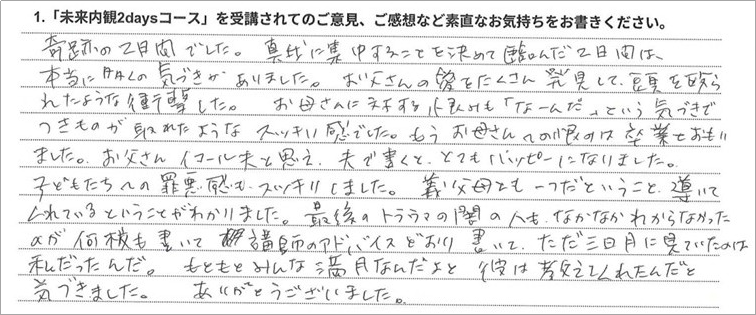 1.「未来内観2daysコース」を受講されてのご意見、ご感想など素直なお気持ちをお書きください。
奇跡の2日間でした。真剣に集中することを決めて臨んだ2日間は、
本当に多くの気づきがありました。お父さんの愛をたくさん発見して、頭を殴ら
れたような衝撃でした。お母さんに対する恨みも「なーんだ」という気づきで
つきものが取れたようなスッキリ感でした。もうお母さんへの恨みは卒業でおもい
ました。お父さんイコール夫と思え、夫で書くと、とてもハッピーになりました。
子どもたちへの罪悪感もスッキリしました。義父母とも一つだということ、導いて
くれているということがわかりました。最後のトラウマの闇の人も、なかなかわからなかった
のが何枚も書いて講師のアドバイスどおり書いて、ただ三日月に見ていたのは
私だったんだ。もともとみんな満月なんだよと彼は教えてくれたんだと
気づきました。ありがとうございました。